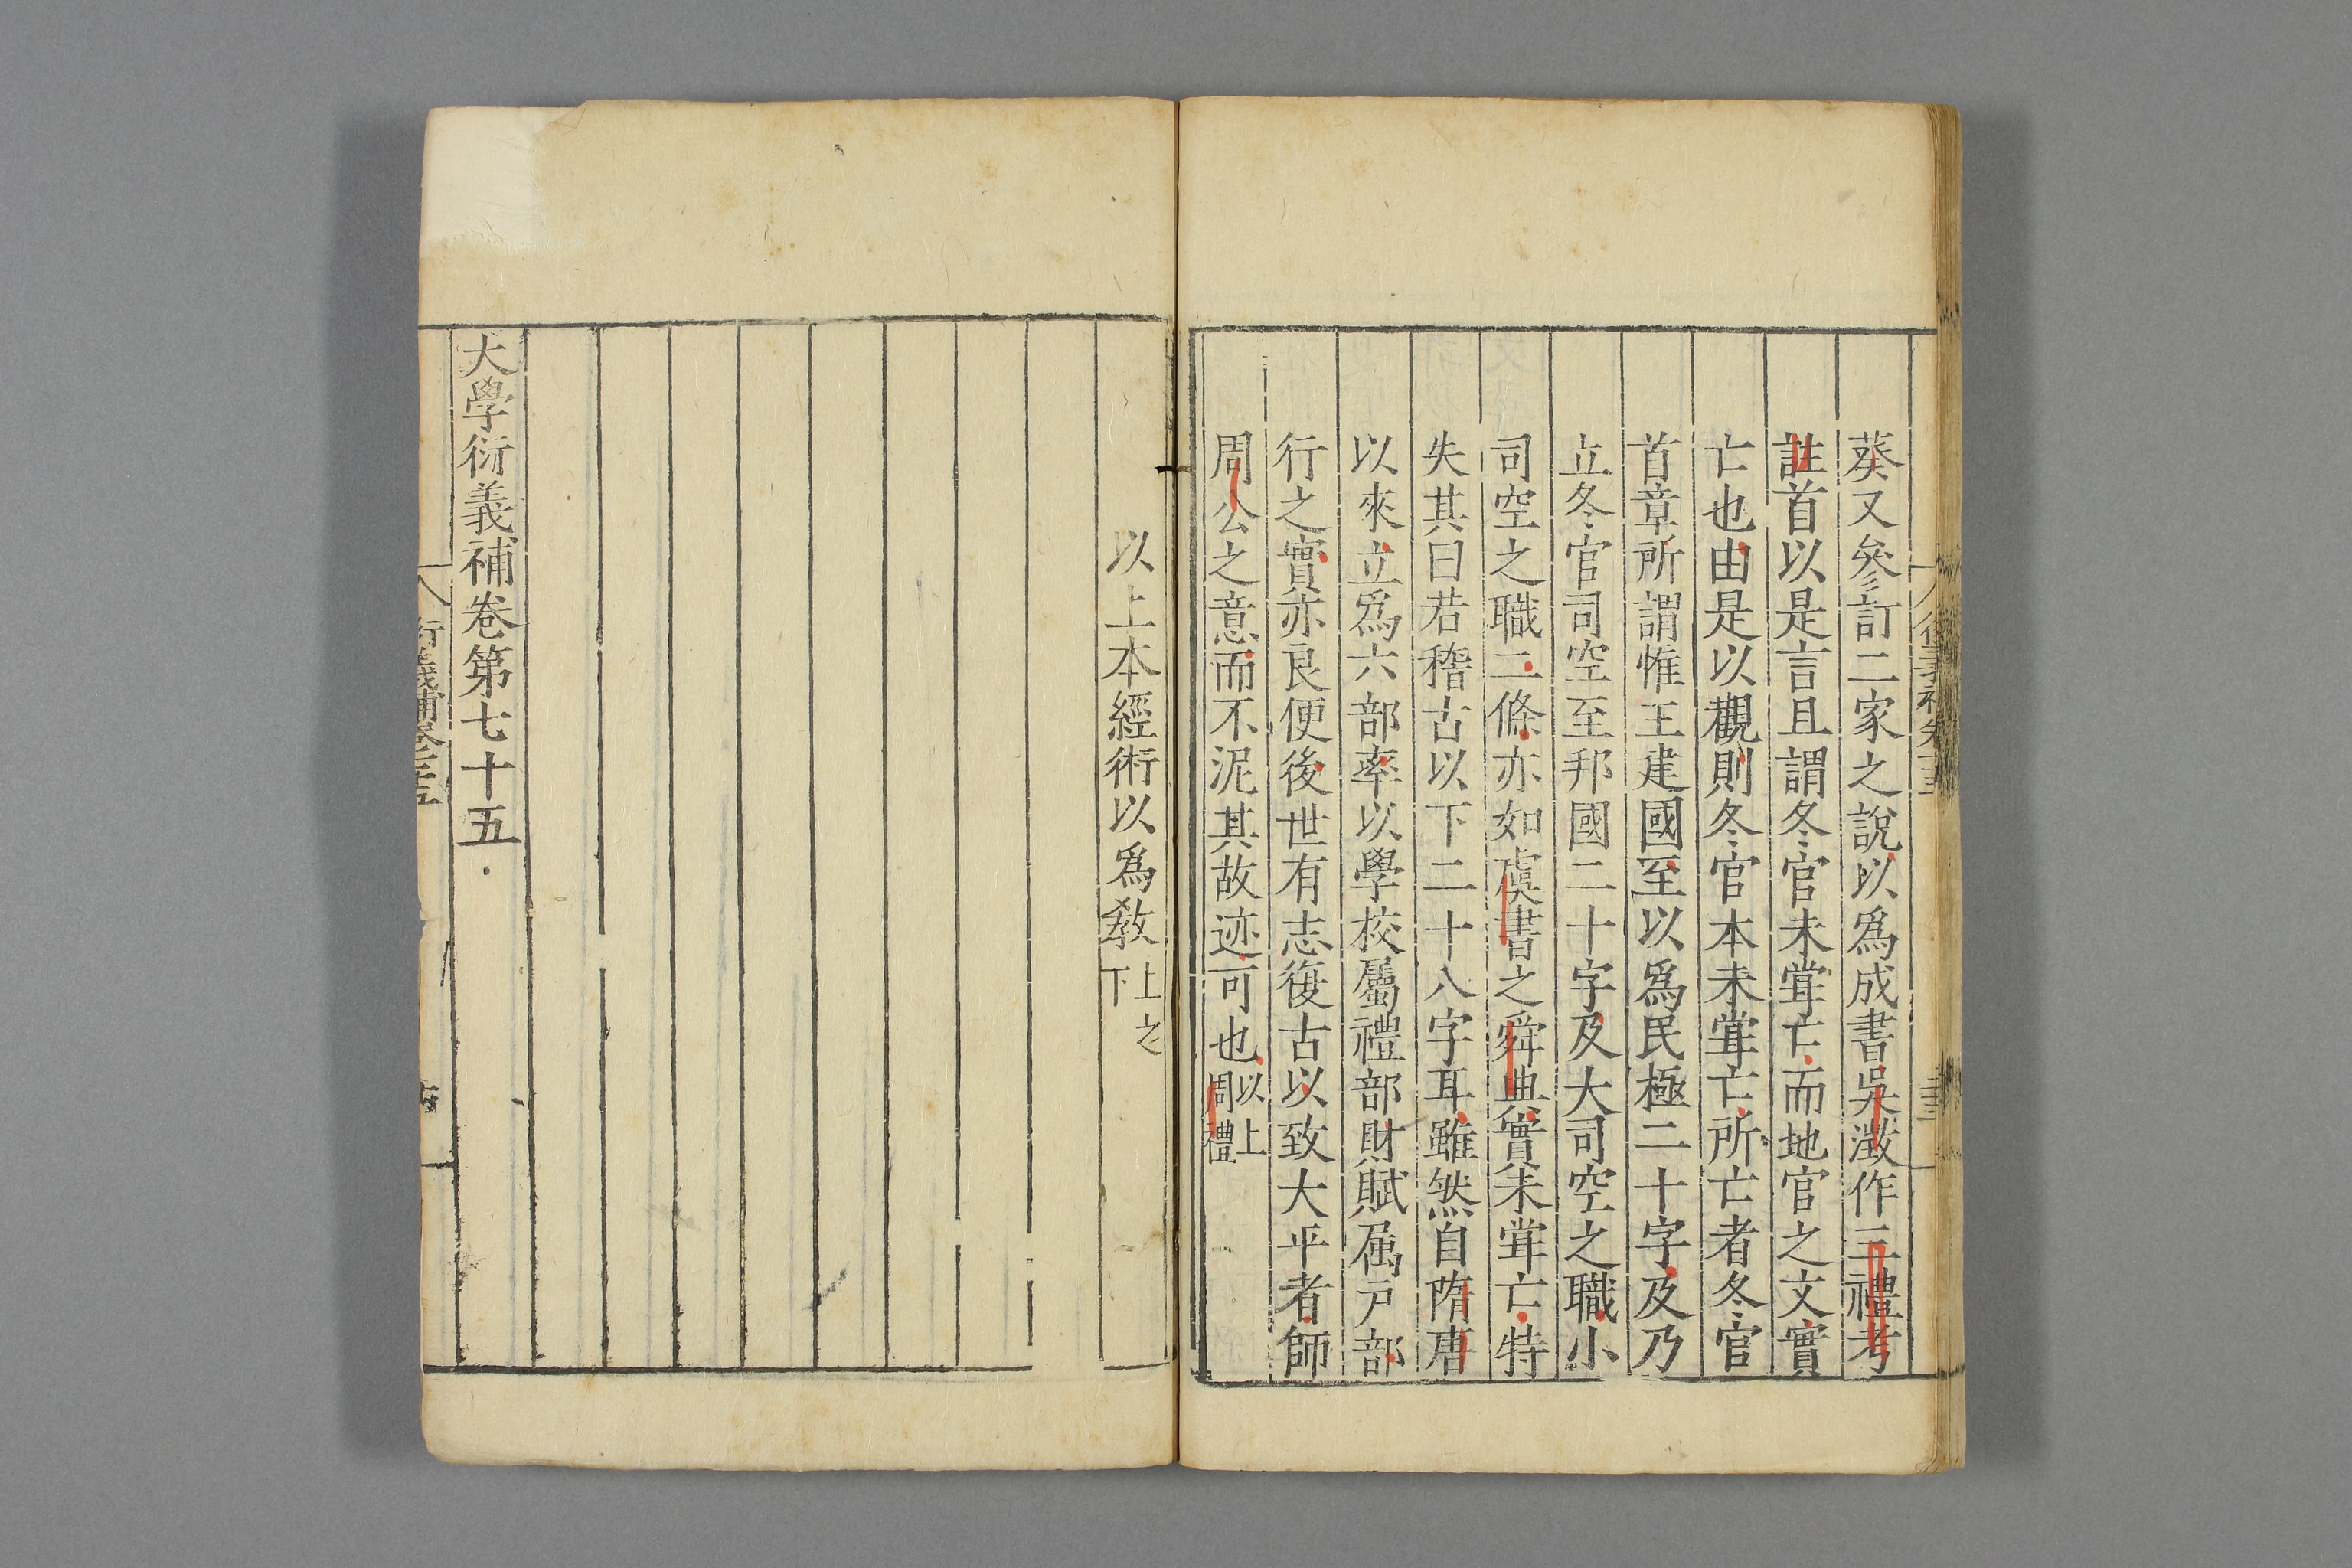 葵又叅訂二家之說以爲成書吳澂作三禮考
註首以是言且謂冬官未甞亡而地官之文實
亡也由是以觀則冬官本未甞亡所亡者冬官
首章所謂惟王建國至以爲民極二十字及乃
立冬官司空至邦國二十字及大司空之職小
司空之職二條亦如虞書之舜典實未甞亡特
失其曰若稽古以下二十八字耳雖然自隋唐
以來立爲六部率以學校屬禮部財賦属戸部
行之實亦良便後世有志復古以致大平者師
周公之意而不泥其故迹可也以上周禮
以上本經術以爲敎上之下
大學衍義補卷第七十五
衍義補卷七十五